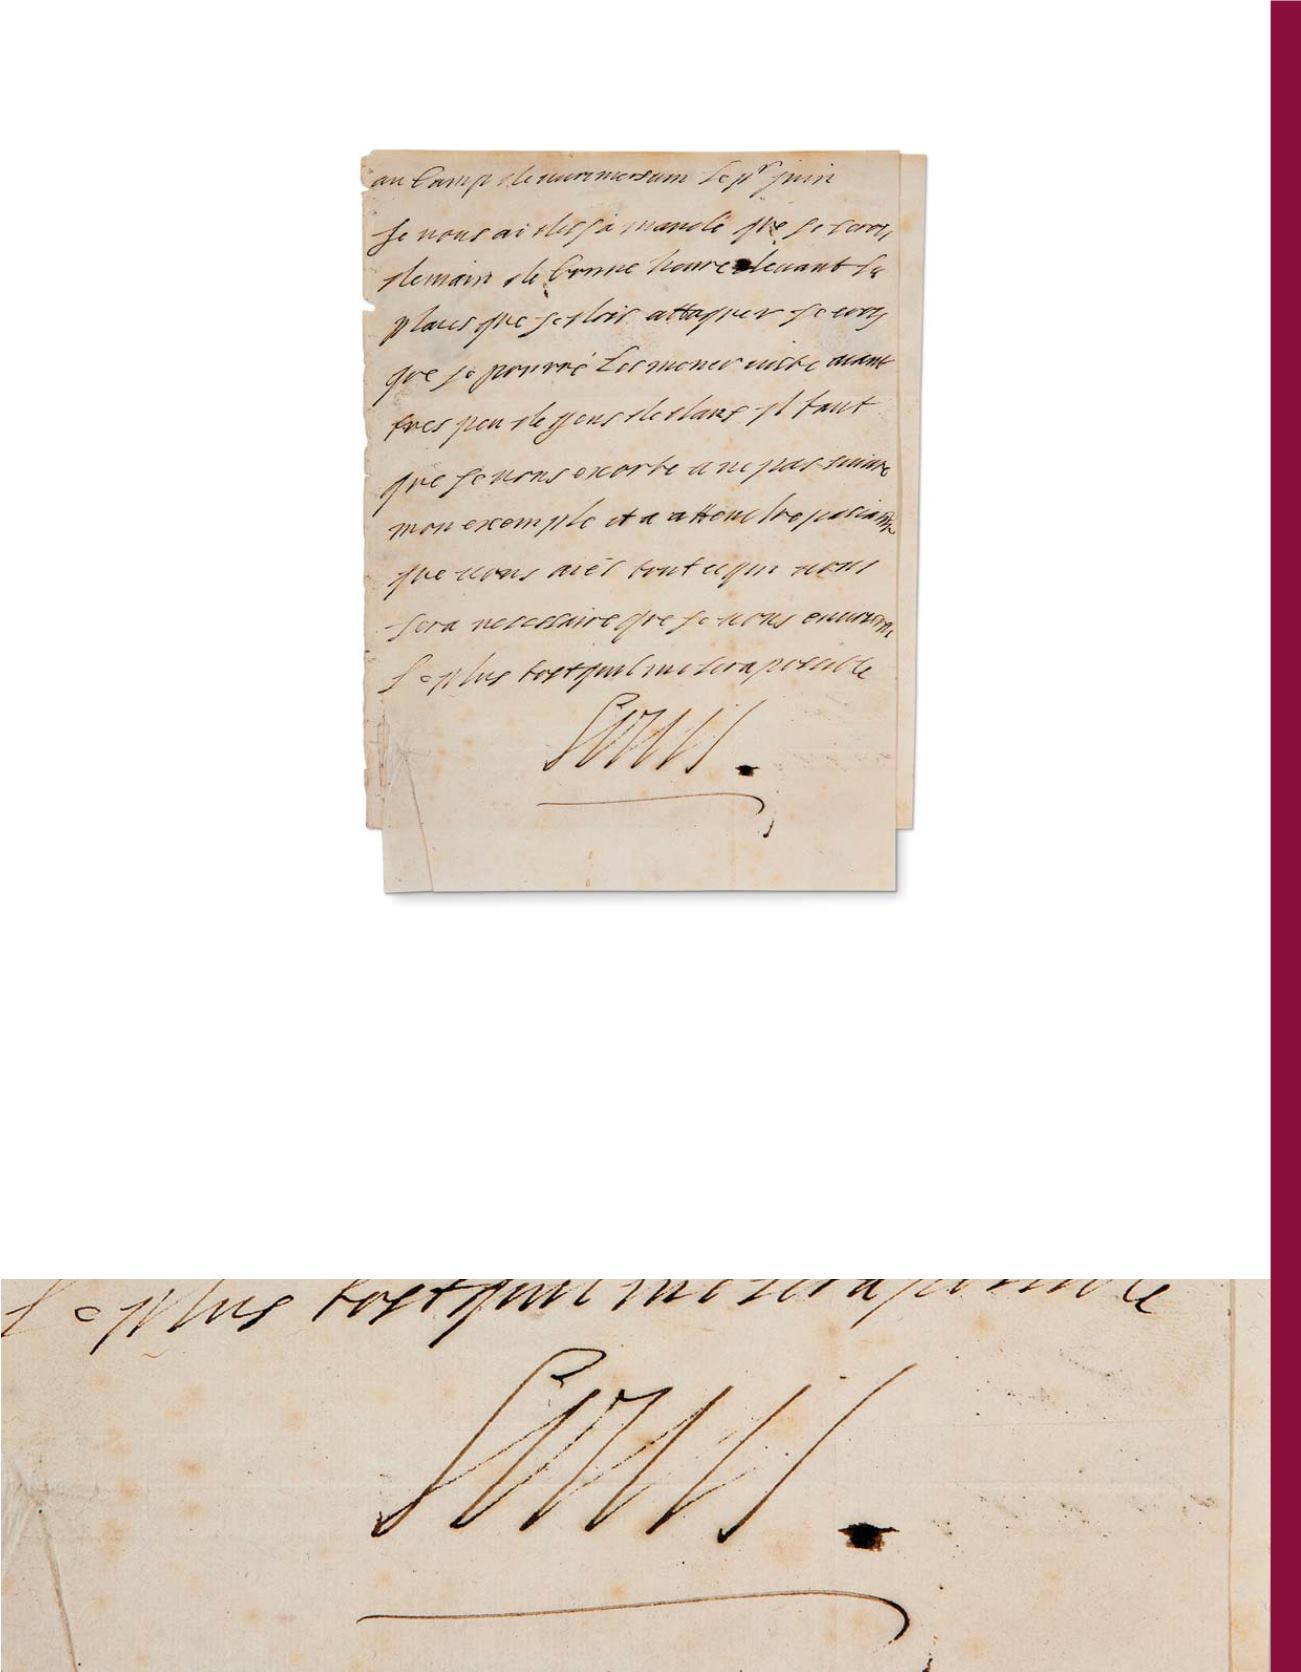 au camp de le pr juin
Je vous ai desja mandé que je serois
demain de bonne heure devant la
place que je dois attaquer je crois
que je pourré les mener viste aiant
tres peu de gens dedans il faut
que je vous exorte a ne pas suivre
mon exemple et a attendre
que vous aiés tout ce qui vous
sera necessaire que je vous
le plus tost quil me sera possible
Louis.
le plus tost quil me sera possible
Louis.